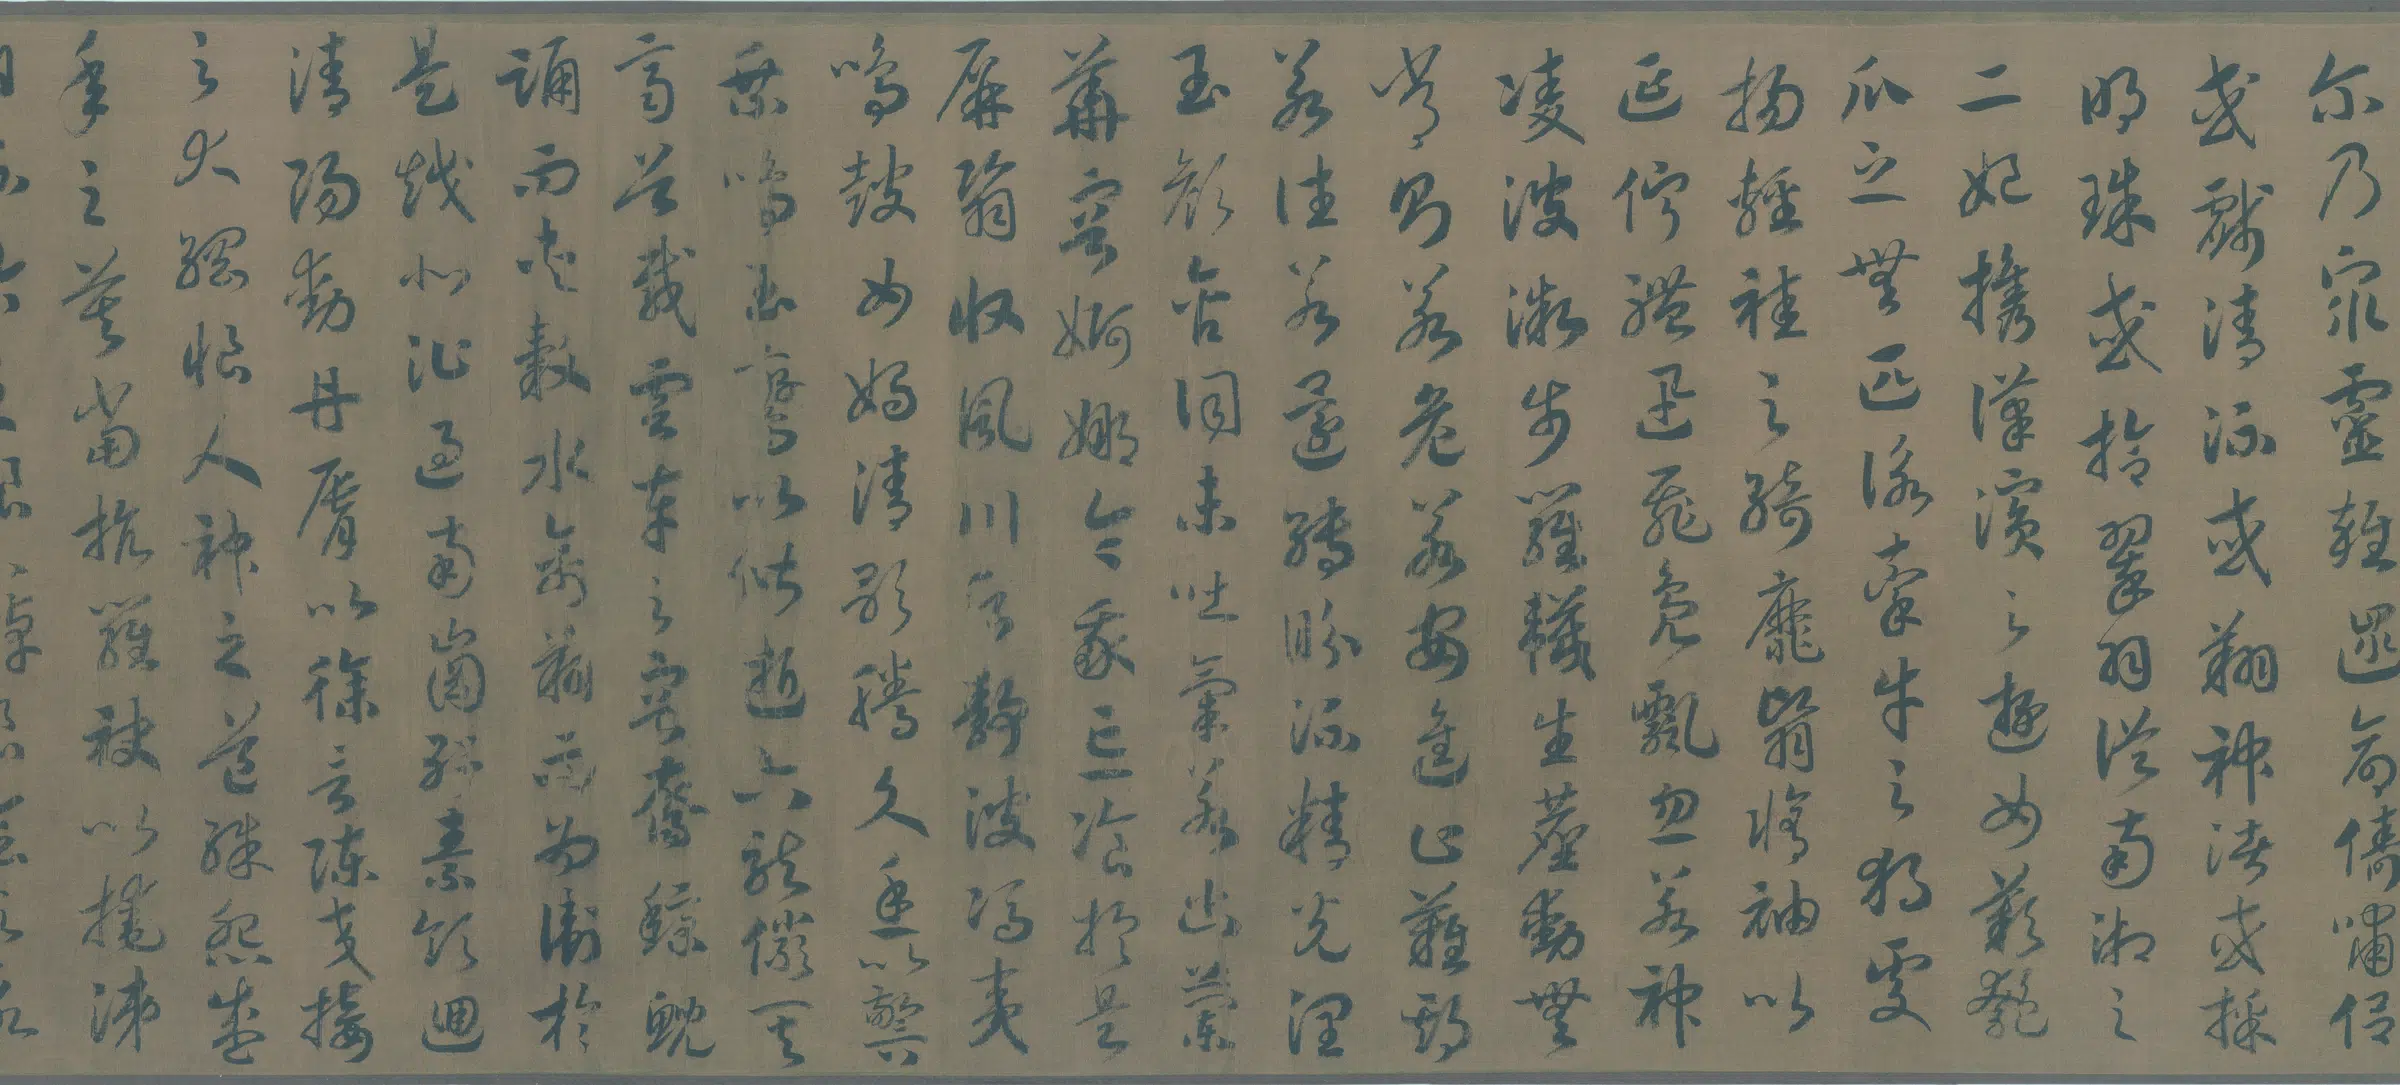 尓乃眾靈雜遝命儔嘯侣
或戲清流或翔神渚或採
明珠或拾翠羽從南湘之
二妃攜漢濱之遊女歎匏
瓜之無匹詠牽牛之獨處
揚輕袿之綺靡翳脩袖以
延佇體迅飛鳧飄忽若神
凌波微步羅襪生塵動無
常則若危若安進止難期
若往若還轉眄流精光潤
玉顏含詞未吐氣若幽蘭
華容婀娜令我忘飡於是
屏翳收風川后靜波馮夷
鳴鼓女媧清歌騰文魚以警
乘鳴玉鸞以偕逝六龍儼其
齊首載雲車之容裔鯨鯢
踊而夾轂水禽翔而為衛於
是越北沚過南岡紆素領迴
清陽動丹脣以徐言陳交接
之大綱恨人神之道殊怨盛
年之莫當抗羅袂以掩涕